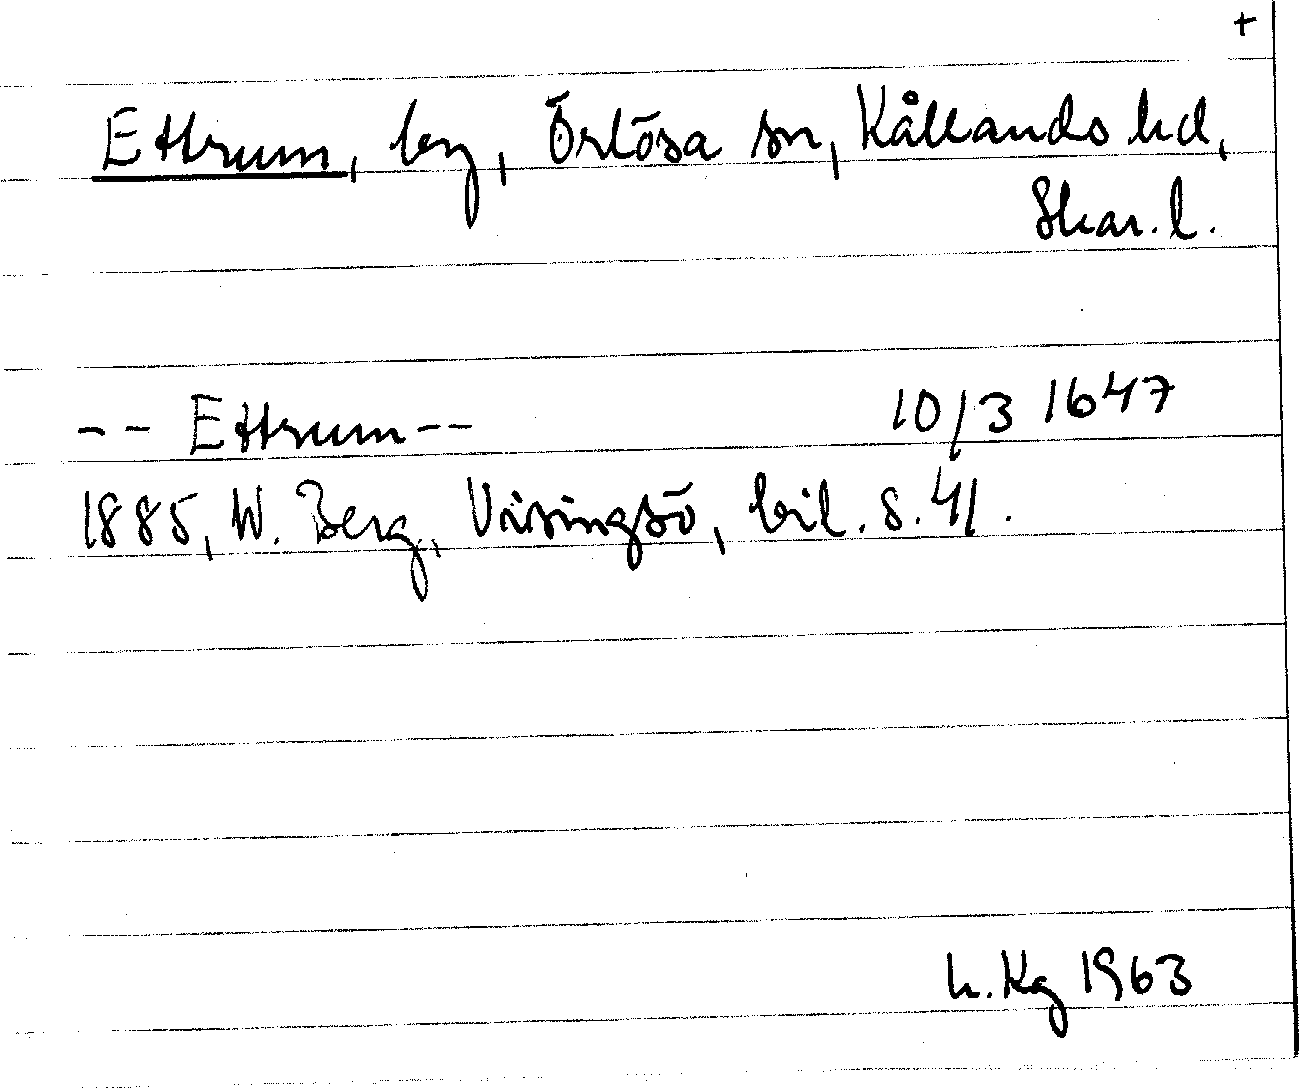 +
Ettrum, by, Örlösa sn, Kållands hd,
Skar. l.
-- Ettrum -- 10/3 1647
1885, W. Berg, Visingsö, bil. s. 41.
h. Kg 1963